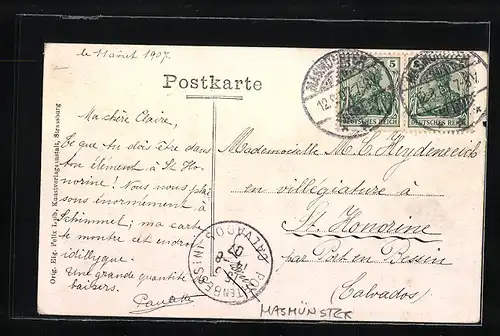 le 11 août 1907.
Postkarte
Ma chère Claire,
Ce que tu dois être dans
ton élément à St Ho-
norine! Nous nous plai-
sons énormément à
Schimmel; ma carte
te montre cet endroit
idillyque.
Une grande quantité
baisers.
Orig. Eig. Felix Luib, Kunstverlagsanstalt, Strassburg
5
DEUTSCHES REICH
DEUTSCHES REICH
12.8.07. 7-8V.
Mademoiselle M. C. Heydenreich
en villégiature à
St. Honorine
par Port en Bessin
(Calvados)
PORT-EN-BESSIN
CALVADOS
MASMÜNSTER